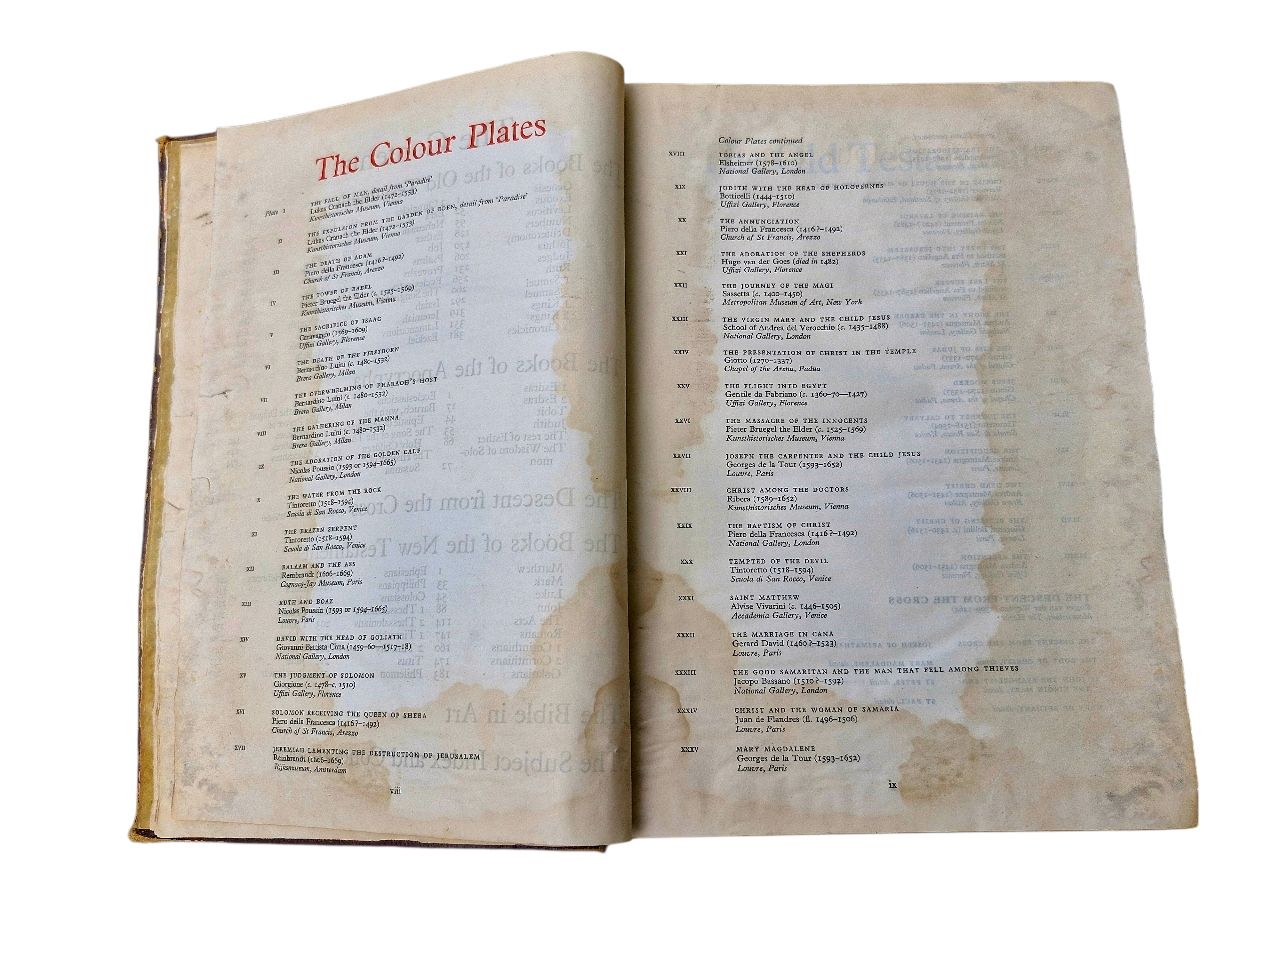 The Colour Plates
Plate I THE FALL OF MAN, detail from 'Paradise'
Lukas Cranach the Elder (1472–1553)
Kunsthistorisches Museum, Vienna
II THE EXPULSION FROM THE GARDEN OF EDEN, detail from 'Paradise'
Lukas Cranach the Elder (1472–1553)
Kunsthistorisches Museum, Vienna
III THE DEATH OF ADAM
Piero della Francesca (1416?–1492)
Church of St Francis, Arezzo
IV THE TOWER OF BABEL
Pieter Bruegel the Elder (c. 1525–1569)
Kunsthistorisches Museum, Vienna
V THE SACRIFICE OF ISAAC
Caravaggio (1569–1609)
Uffizi Gallery, Florence
VI THE DEATH OF THE FIRSTBORN
Bernardino Luini (c. 1480–1532)
Brera Gallery, Milan
VII THE OVERWHELMING OF PHARAOH'S HOST
Bernardino Luini (c. 1480–1532)
Brera Gallery, Milan
VIII THE GATHERING OF THE MANNA
Bernardino Luini (c. 1480–1532)
Brera Gallery, Milan
IX THE ADORATION OF THE GOLDEN CALF
Nicolas Poussin (1593 or 1594–1665)
National Gallery, London
X THE WATER FROM THE ROCK
Tintoretto (1518–1594)
Scuola di San Rocco, Venice
XI THE BRAZEN SERPENT
Tintoretto (1518–1594)
Scuola di San Rocco, Venice
XII BALAAM AND THE ASS
Rembrandt (1606–1669)
Cognacq-Jay Museum, Paris
XIII RUTH AND BOAZ
Nicolas Poussin (1593 or 1594–1665)
Louvre, Paris
XIV DAVID WITH THE HEAD OF GOLIATH
Giovanni Battista Cima (1459–60—1517–18)
National Gallery, London
XV THE JUDGMENT OF SOLOMON
Giorgione (c. 1478–c. 1510)
Uffizi Gallery, Florence
XVI SOLOMON RECEIVING THE QUEEN OF SHEBA
Piero della Francesca (1416?–1492)
Church of St Francis, Arezzo
XVII JEREMIAH LAMENTING THE DESTRUCTION OF JERUSALEM
Rembrandt (1606–1669)
Rijksmuseum, Amsterdam
viii
Colour Plates continued
XVIII TOBIAS AND THE ANGEL
Elsheimer (1578–1610)
National Gallery, London
XIX JUDITH WITH THE HEAD OF HOLOFERNES
Botticelli (1444–1510)
Uffizi Gallery, Florence
XX THE ANNUNCIATION
Piero della Francesca (1416?–1492)
Church of St Francis, Arezzo
XXI THE ADORATION OF THE SHEPHERDS
Hugo van der Goes (died in 1482)
Uffizi Gallery, Florence
XXII THE JOURNEY OF THE MAGI
Sassetta (c. 1400–1450)
Metropolitan Museum of Art, New York
XXIII THE VIRGIN MARY AND THE CHILD JESUS
School of Andrea del Verocchio (c. 1435–1488)
National Gallery, London
XXIV THE PRESENTATION OF CHRIST IN THE TEMPLE
Giotto (1270–1337)
Chapel of the Arena, Padua
XXV THE FLIGHT INTO EGYPT
Gentile da Fabriano (c. 1360–70—1427)
Uffizi Gallery, Florence
XXVI THE MASSACRE OF THE INNOCENTS
Pieter Bruegel the Elder (c. 1525–1569)
Kunsthistorisches Museum, Vienna
XXVII JOSEPH THE CARPENTER AND THE CHILD JESUS
Georges de la Tour (1593–1652)
Louvre, Paris
XXVIII CHRIST AMONG THE DOCTORS
Ribera (1589–1652)
Kunsthistorisches Museum, Vienna
XXIX THE BAPTISM OF CHRIST
Piero della Francesca (1416?–1492)
National Gallery, London
XXX TEMPTED OF THE DEVIL
Tintoretto (1518–1594)
Scuola di San Rocco, Venice
XXXI SAINT MATTHEW
Alvise Vivarini (c. 1446–1505)
Accademia Gallery, Venice
XXXII THE MARRIAGE IN CANA
Gerard David (1460?–1523)
Louvre, Paris
XXXIII THE GOOD SAMARITAN AND THE MAN THAT FELL AMONG THIEVES
Jacopo Bassano (1510?–1592)
National Gallery, London
XXXIV CHRIST AND THE WOMAN OF SAMARIA
Juan de Flandres (fl. 1496–1506)
Louvre, Paris
XXXV MARY MAGDALENE
Georges de la Tour (1593–1652)
Louvre, Paris
ix